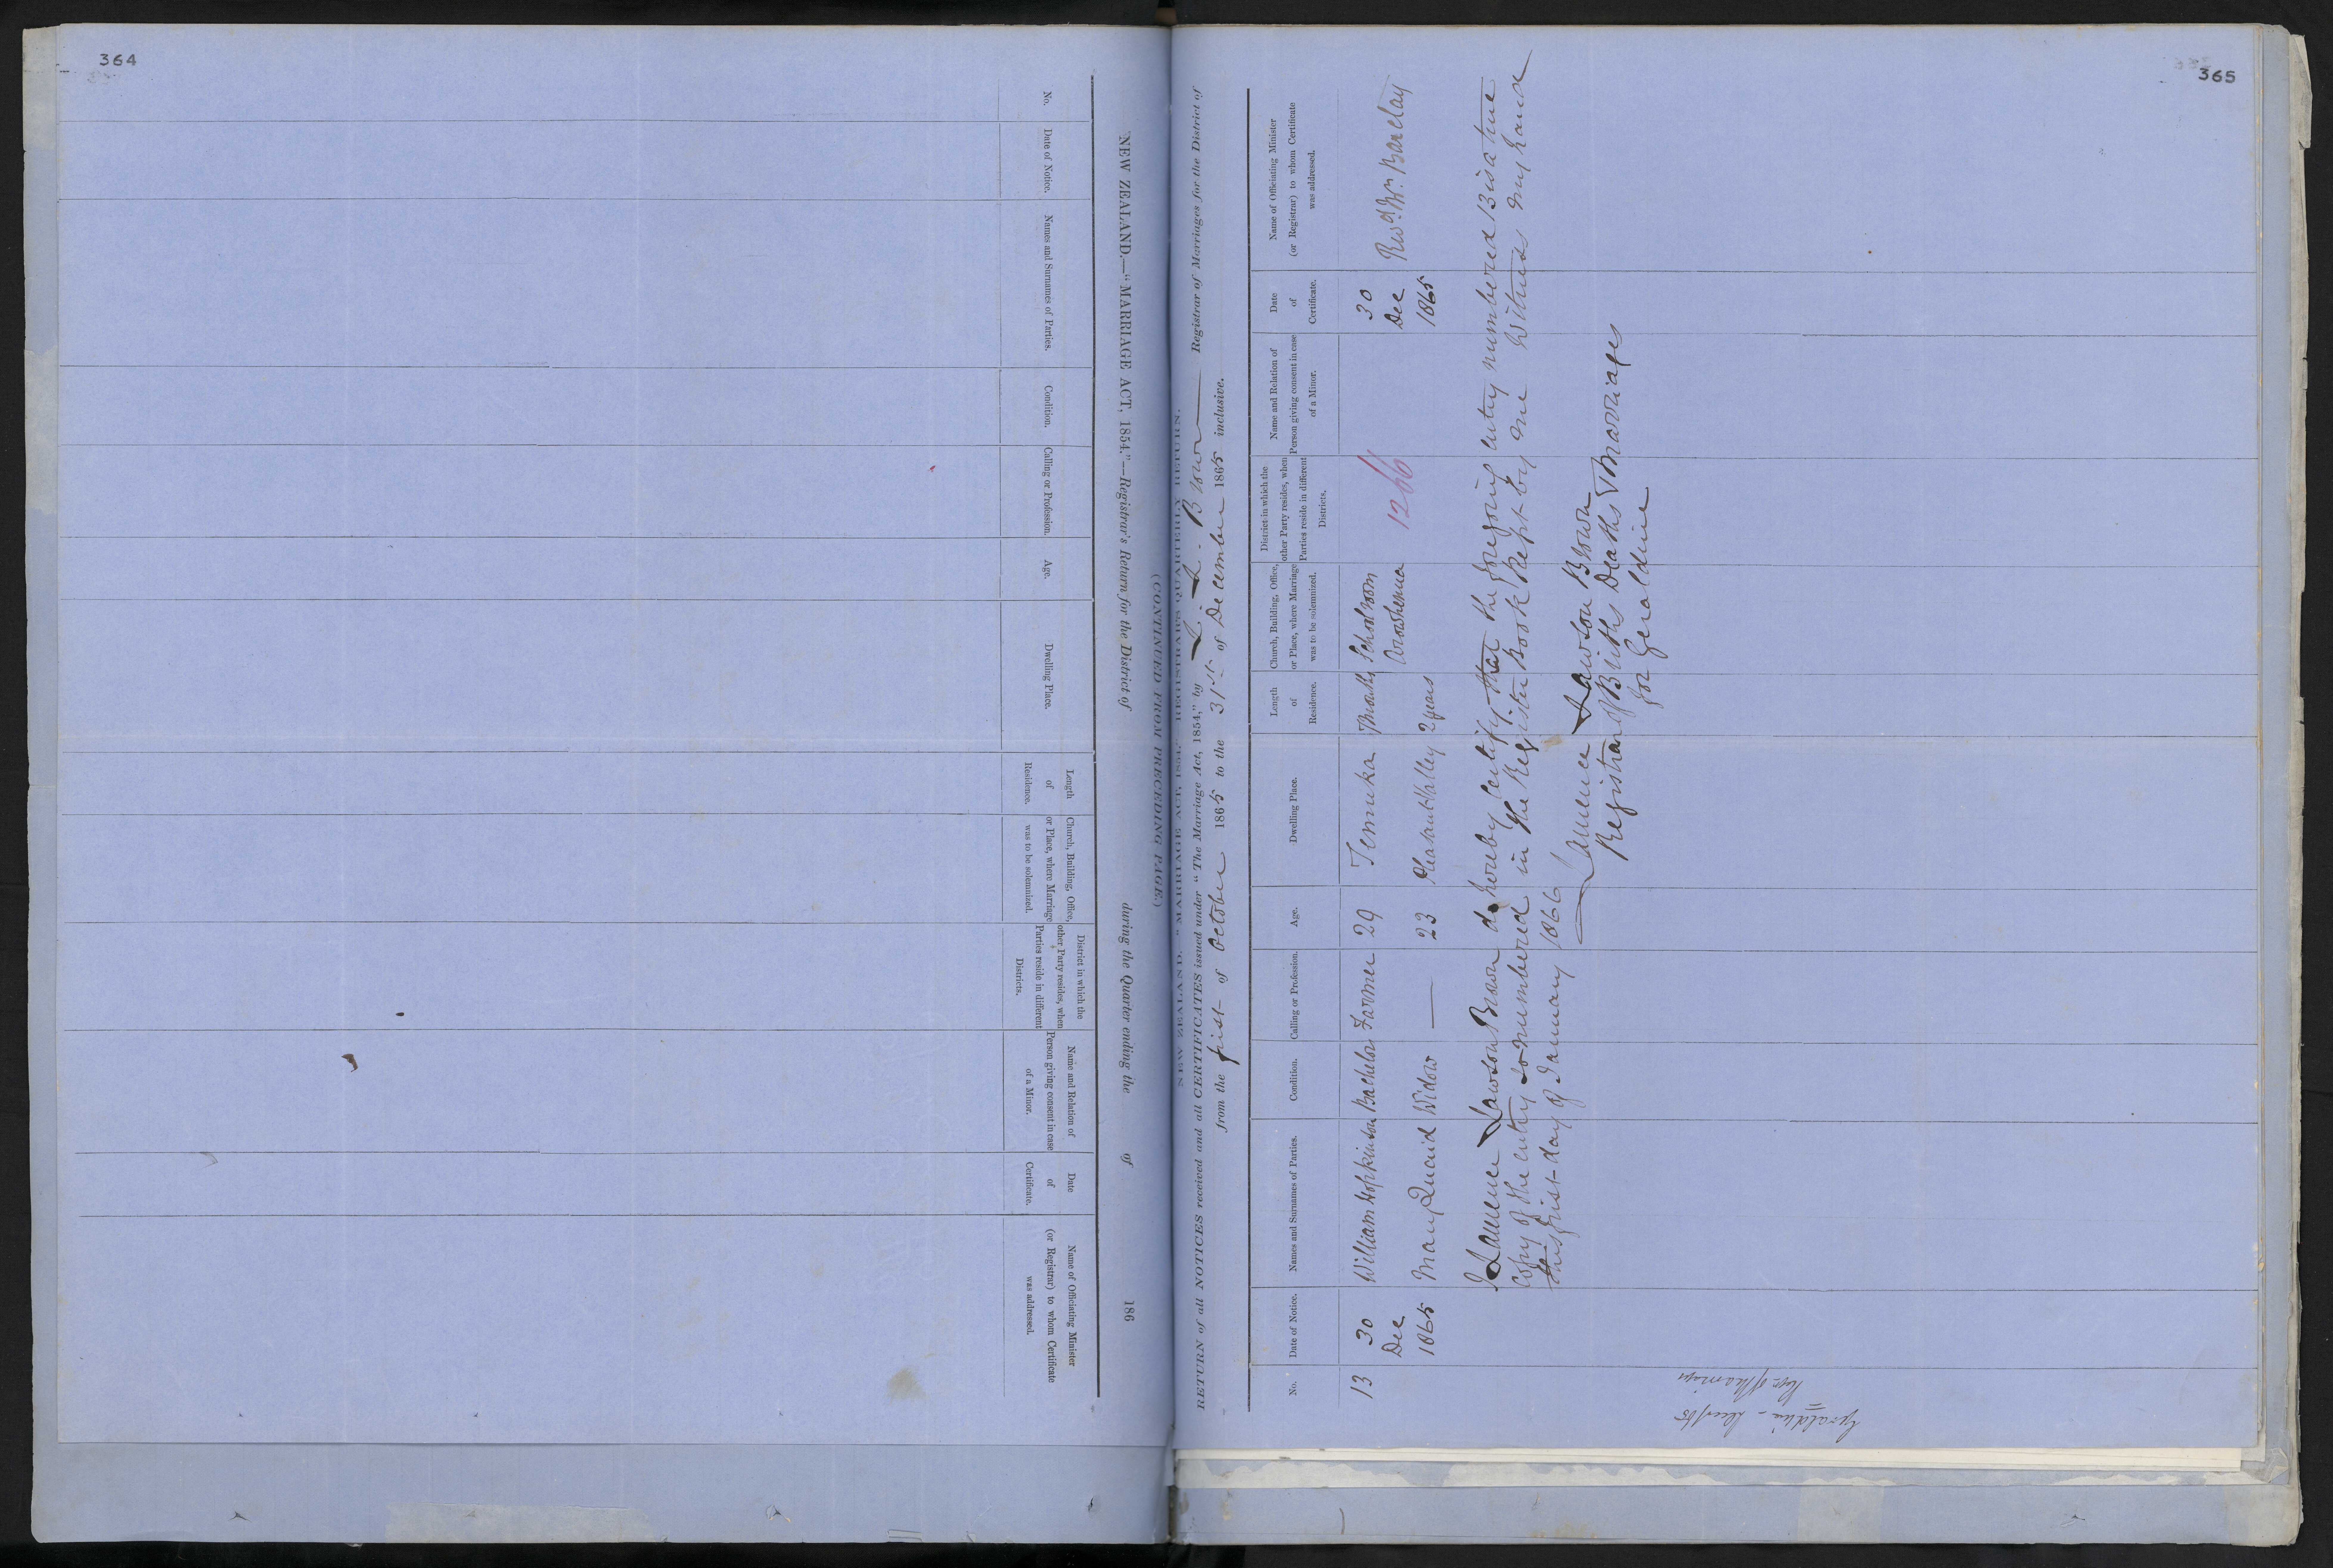 364
NEW ZEALAND.—"MARRIAGE ACT, 1854."—Registrar's Return for the District of during the Quarter ending the of 186
(CONTINUED FROM PRECEDING PAGE.)
No.
Date of Notice.
Names and Surnames of Parties.
Condition.
Calling or Profession.
Age.
Dwelling Place.
Length of Residence.
Church, Building, Office, or Place, where Marriage was to be solemnized.
District in which the other Party resides, when Parties reside in different Districts.
Name and Relation of Person giving consent in case of a Minor.
Date of Certificate.
Name of Officiating Minister (or Registrar) to whom Certificate was addressed.
365
NEW ZEALAND. "MARRIAGE ACT, 1854." REGISTRAR'S QUARTERLY RETURN.
RETURN of all NOTICES received and all CERTIFICATES issued under "The Marriage Act, 1854," by L. L. Brown Registrar of Marriages for the District of
from the first of October 1865 to the 31st of December 1865 inclusive.
No.
Date of Notice.
Names and Surnames of Parties.
Condition.
Calling or Profession.
Age.
Dwelling Place.
Length of Residence.
Church, Building, Office, or Place, where Marriage was to be solemnized.
District in which the other Party resides, when Parties reside in different Districts.
Name and Relation of Person giving consent in case of a Minor.
Date of Certificate.
Name of Officiating Minister (or Registrar) to whom Certificate was addressed.
13 30 William Hopkinson Bachelor Farmer 29 Temuka Schoolroom 30
Dec Arowhenua 1266 Dec Revd. Wm. Barclay
1865 Mary Quaid Widow — 23 Pleasant Valley 2 years 1865
I Laurence Lawson Brown do hereby Certify that the foregoing entry numbered 13 is a true
Copy of the entry so numbered in the Register Book kept by me Witness my hand
this first day of January 1866
Laurence Lawson Brown
Registrar of Births Deaths & Marriages
for Geraldine